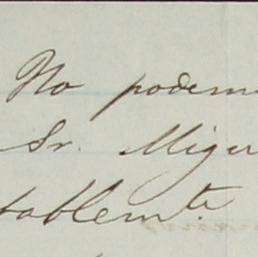 No podem
Sr. Migu
tablemte.